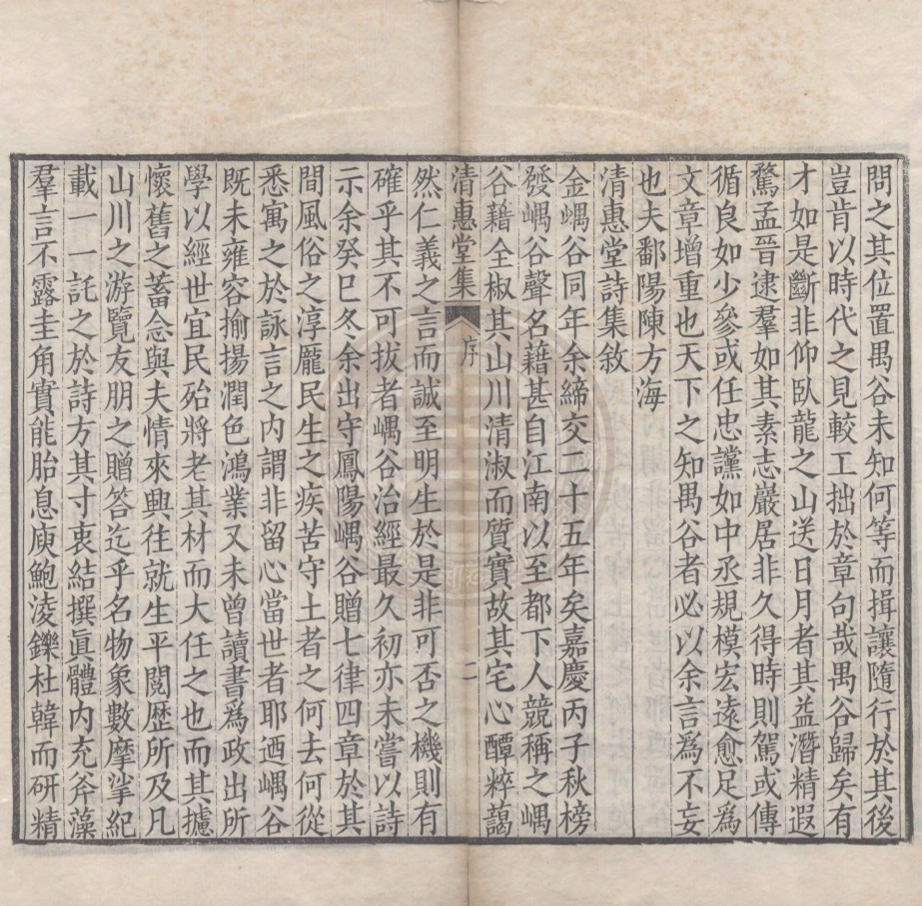 問之其位置禺谷未知何等而揖讓隨行於其後
豈肯以時代之見較工拙於章句哉禺谷歸矣有
才如是斷非仰臥龍之山送日月者其益潛精遐
騖孟晉逮羣如其素志嚴居非久得時則駕或傳
循良如少參或任忠讜如中丞規模宏遠愈足爲
文章增重也天下之知禺谷者必以余言爲不妄
也夫鄱陽陳方海
清惠堂詩集敘
金嵎谷同年余締交二十五年矣嘉慶丙子秋榜
發嵎谷聲名藉甚自江南以至都下人競稱之嵎
谷藉全椒其山川清淑而質實故其宅心醰粹藹
清惠堂集
序
二
然仁義之言而誠至明生於是非可否之機則有
確乎其不可拔者嵎谷治經最久初亦未嘗以詩
示余癸巳冬余出守鳳陽嵎谷贈七律四章於其
間風俗之淳龐民生之疾苦守土者之何去何從
悉寓之於詠言之內謂非留心當世者耶迺嵎谷
既未雍容揄揚潤色鴻業又未曾讀書爲政出所
學以經世宜民殆將老其材而大任之也而其攄
懷舊之蓄念與夫情來興往就生平閱歷所及凡
山川之游覽友朋之贈答迄乎名物象數摩挲紀
載一一託之於詩方其寸衷結撰眞體內充斧藻
羣言不露圭角實能胎息庾鮑淩鑠杜韓而研精